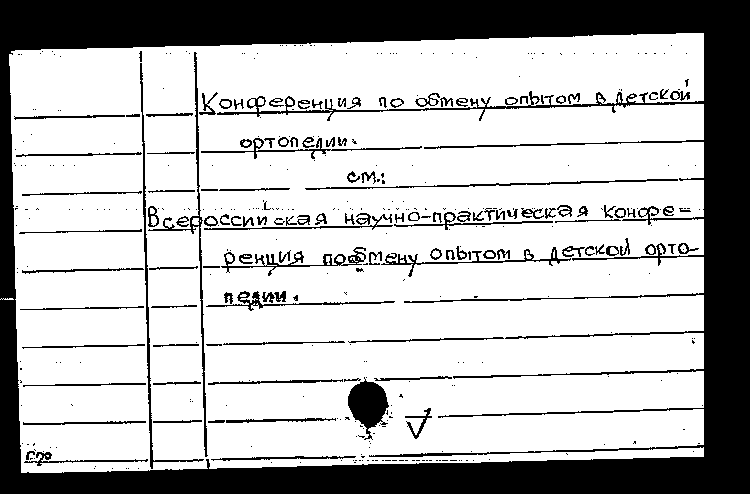 Конференция по обмену опытом в детской
ортопедии.
см.:
Всероссийская научно-практическая конфе=
ренция по обмену опытом в детской орто-
педии.
V